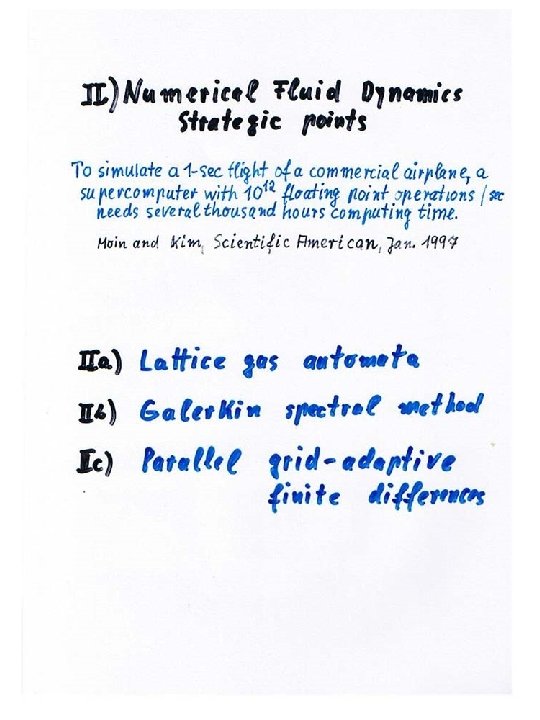 II) Numerical Fluid Dynamics
Strategic points
To simulate a 1-sec flight of a commercial airplane, a
supercomputer with 10¹² floating point operations / sec
needs several thousand hours computing time.
Moin and Kim, Scientific American, Jan. 1997
IIa) Lattice gas automata
IIb) Galerkin spectral method
Ic) Parallel grid-adaptive
finite differences